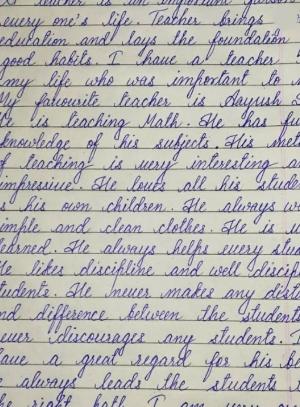 teacher is an important person
every one's life. Teacher brings
education and lays the foundation
good habits. I have a teacher
my life who was important to
My favourite teacher is Aayush
He is teaching Math. He has fu
knowledge of his subjects. His met
of teaching is very interesting a
impressive. He loves all his stude
s his own children. He always w
imple and clean clothes. He is w
learned. He always helps every stud
He likes discipline and well discip
tudents. He never makes any dist
nd difference between the students
ever discourages any students. I
have a great regard for his be
e always leads the students
he right path. I am very